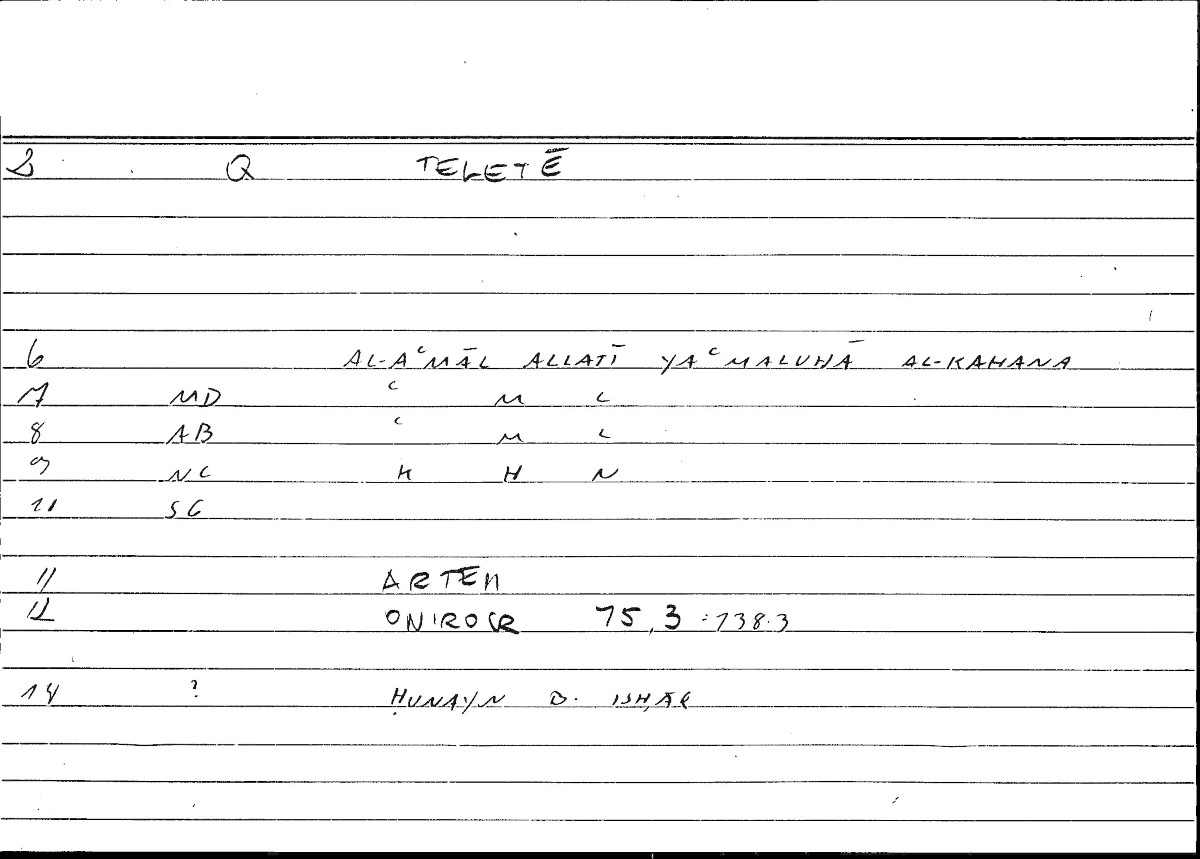 2 Q TELETĒ
6 AL-AʿMĀL ALLATĪ YAʿMALUHĀ AL-KAHANA
7 MD ʿ M L
8 AB ʿ M L
9 NC K H N
10 SG
11 ARTEM
12 ONIROCR 75,3 :138.3
14 ? ḤUNAYN B. ISḤĀQ